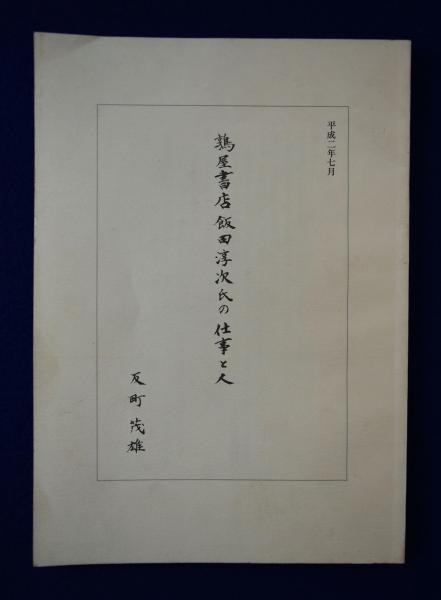 平成二年七月
鶉屋書店 飯田淳次氏の仕事と人
反町茂雄